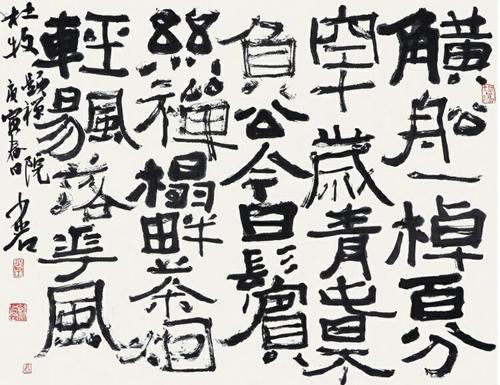 觵船一棹百分
空十歲青春不
負公今日鬢
絲禪榻畔茶烟
輕颺落華風
杜牧題禪院
庚寅春日